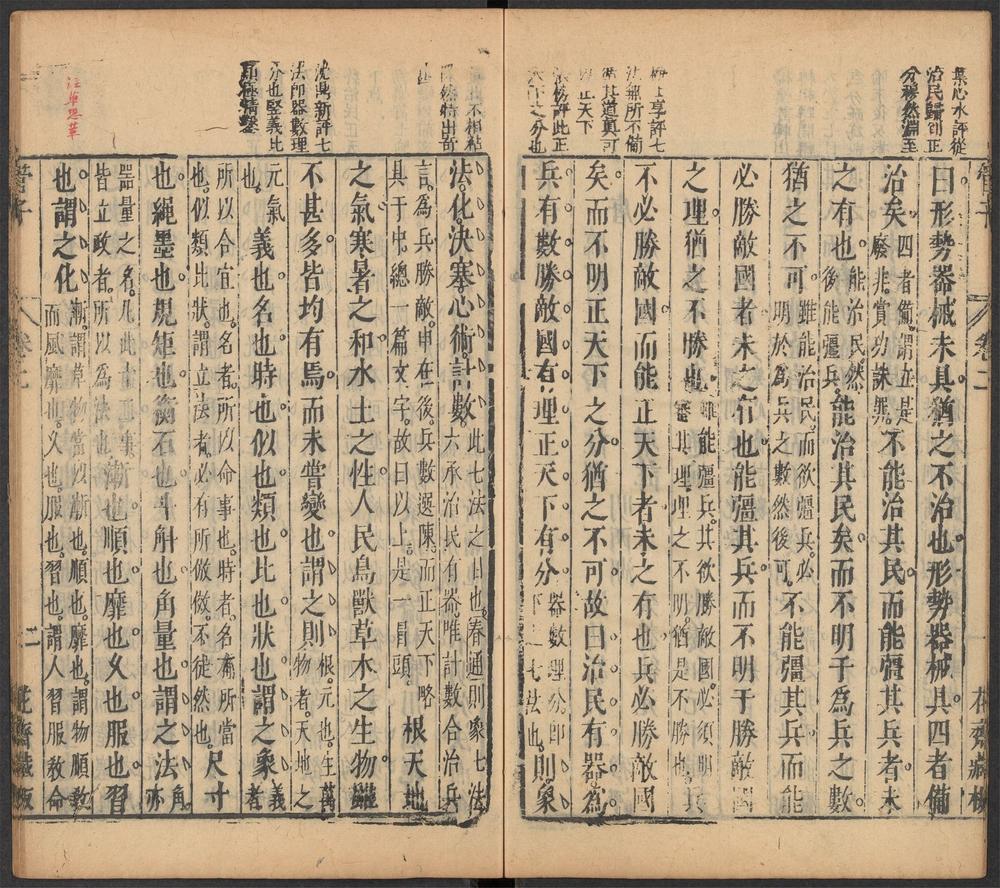 集心水評從
治民歸到正
分穆然淵至
曰形勢器械未具猶之不治也形勢器械具四者備
治矣四者備謂立是廢非賞功誅罪不能治其民而能彊其兵者未
之有也能治民然後能彊兵能治其民矣而不明于爲兵之數
猶之不可雖能治民而欲彊兵必明於爲兵之數然後可不能彊其兵而能
必勝敵國者未之有也能彊其兵而不明于勝敵國
之理猶之不勝也雖能彊兵其欲勝敵國必須明審其理理之不明猶是不勝也兵
享評七
法無所不備
其道真可
正天下
評此正
之分也
不必勝敵國而能正天下者未之有也兵必勝敵國
矣而不明正天下之分猶之不可故曰治民有器爲
兵有數勝敵國有理正天下有分器數理分即下之七法也則象
管子
卷二
花齋藏板
此不相粘
然特出奇
法化決塞心術計數此七法之目也春通則象七法六承治民有器唯計數合治兵
言爲兵勝敵申在後兵數選陳而正天下略具于中總一篇文字故曰以上是一冐頭根天地
沈禹新評七
法即器數理
分也堅義比
類極精鑿
之氣寒暑之和水土之性人民鳥獸草木之生物雖
不甚多皆均有焉而未嘗變也謂之則根元也生萬物者天地之
元氣也義也名也時也似也類也比也狀也謂之象義者
所以合宜也名者所以命事也時者名有所當也似類比狀謂立法者必有所倣倣不徒然也尺寸
也繩墨也規矩也衡石也斗斛也角量也謂之法角亦
器量之名凡此十二事皆立政者所以爲法也漸也順也靡也久也服也習
也謂之化漸謂草物當以漸也順也靡也謂物順教而風靡也久也服也習也謂人習服教命
管子
二
花齋藏板